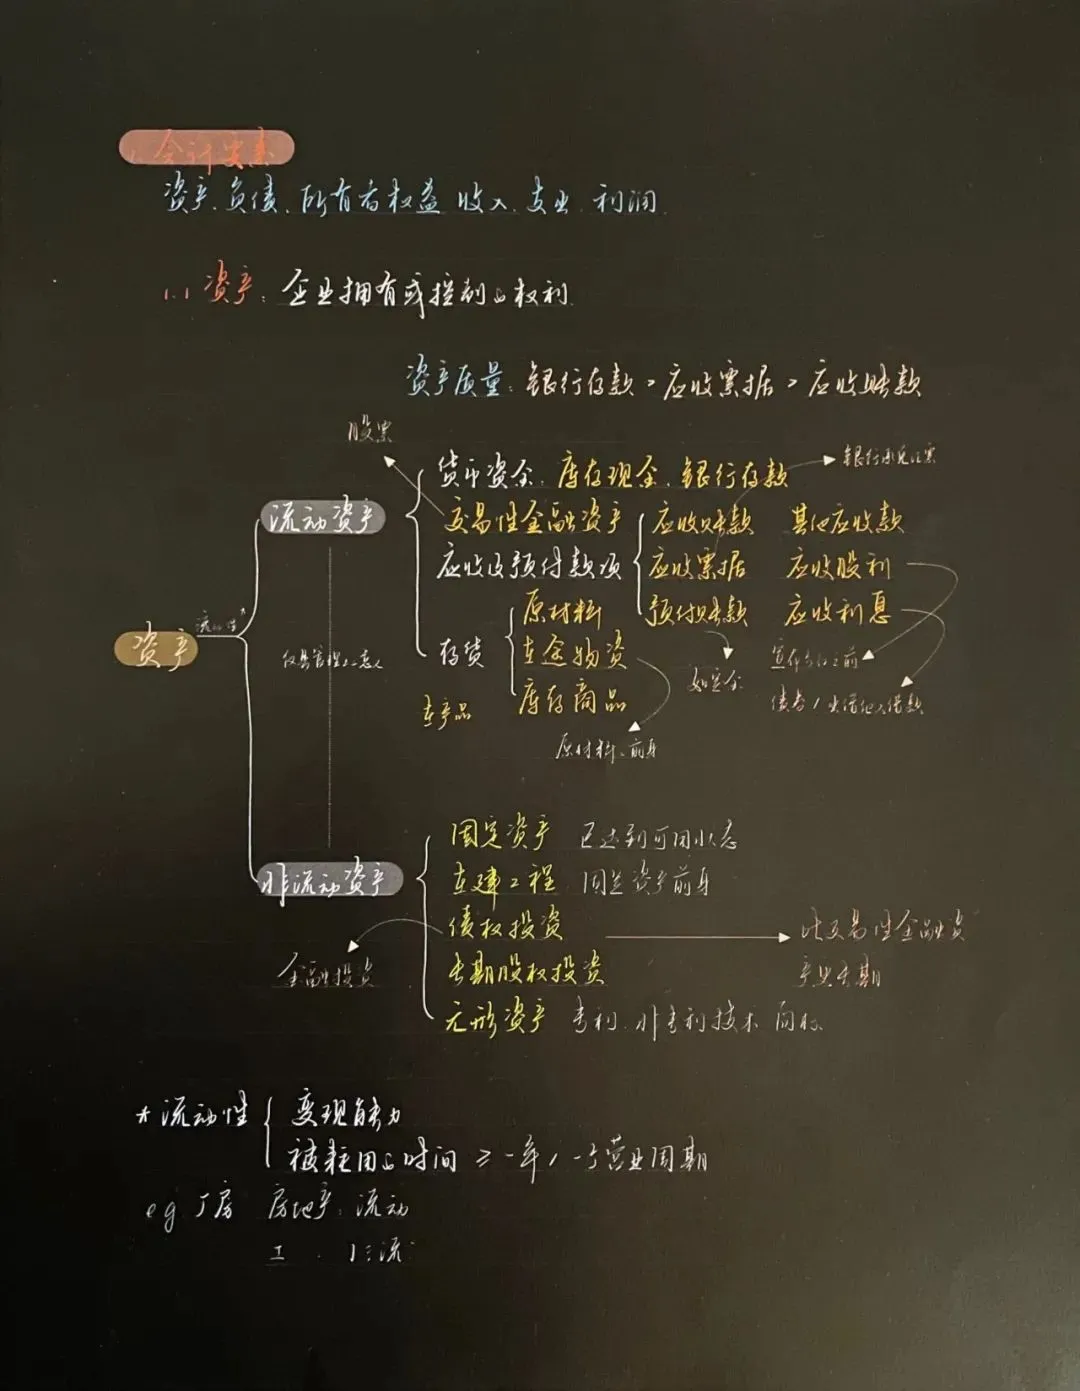 会计要素
资产、负债、所有者权益、收入、支出、利润
1.1 资产：企业拥有或控制的权利
资产质量：银行存款 > 应收票据 > 应收账款
股票
货币资金：库存现金、银行存款
银行承兑汇票
流动资产
交易性金融资产
应收及预付款项
应收账款 其他应收款
应收票据 应收股利
预付账款 应收利息
存货
原材料
在途物资
库存商品
在产品
如定金
原材料、前身
资产
流动性
非流动资产
固定资产 已达到可用状态
在建工程 固定资产前身
债权投资
比交易性金融资
产更长期
金融投资
长期股权投资
无形资产 专利、非专利技术 商标
* 流动性
变现能力
被耗用的时间 ≥ 一年 / 一个营业周期
eg 厂房 房地产：流动